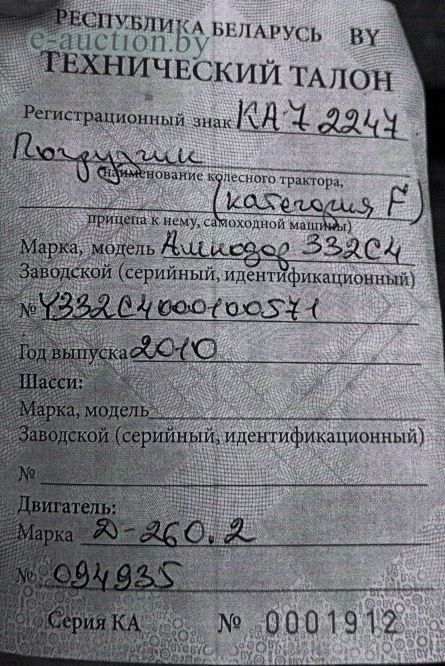 РЕСПУБЛИКА БЕЛАРУСЬ BY
e-auction.by
ТЕХНИЧЕСКИЙ ТАЛОН
Регистрационный знак КА-7 2247
Погрузчик
(наименование колесного трактора,
(категория F)
прицепа к нему, самоходной машины)
Марка, модель Амкодор 332С4
Заводской (серийный, идентификационный)
№ Y332C4000100571
Год выпуска 2010
Шасси:
Марка, модель
Заводской (серийный, идентификационный)
№
Двигатель:
Марка Д-260.2
№ 094935
Серия КА № 0001912